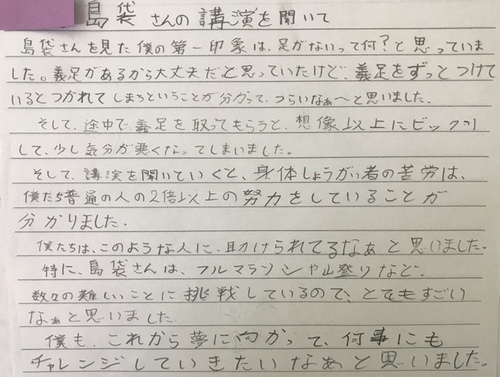 島袋さんの講演を聞いて
島袋さんを見た僕の第一印象は、足がないって何?と思っていま
した。義足があるから大丈夫だと思っていたけど、義足をずっとつけて
いるとつかれてしまうということが分かって、つらいなぁ〜と思いました。
そして、途中で義足を取ってもらうと、想像以上にビックリ
して、少し気分が悪くなってしまいました。
そして、講演を聞いていくと、身体しょうがい者の苦労は、
僕たち普通の人の2倍以上の努力をしていることが
分かりました。
僕たちは、このような人に、助けられてるなぁと思いました。
特に、島袋さんは、フルマラソンや山登りなど、
数々の難しいことに挑戦しているので、とてもすごい
なぁと思いました。
僕も、これから夢に向かって、何事にも
チャレンジしていきたいなぁと思いました。